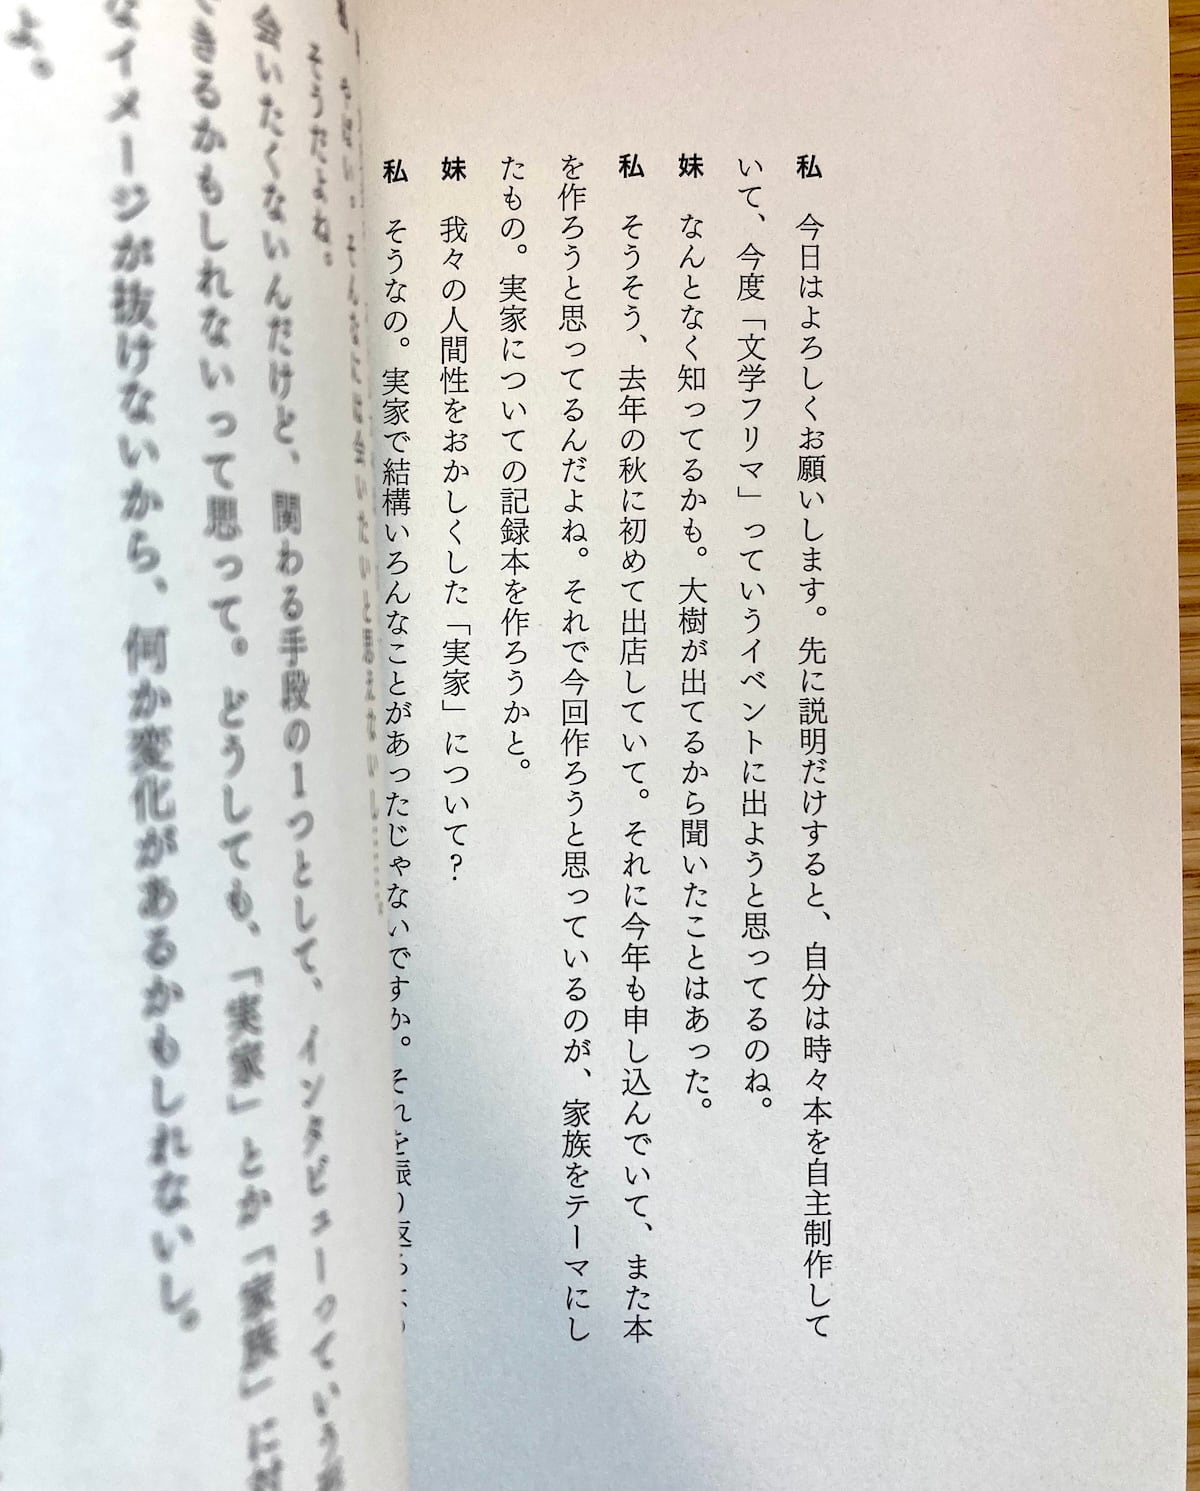 私　今日はよろしくお願いします。先に説明だけすると、自分は時々本を自主制作して
いて、今度「文学フリマ」っていうイベントに出ようと思ってるのね。
妹　なんとなく知ってるかも。大樹が出てるから聞いたことはあった。
私　そうそう、去年の秋に初めて出店していて。それに今年も申し込んでいて、また本
を作ろうと思ってるんだよね。それで今回作ろうと思っているのが、家族をテーマにし
たもの。実家についての記録本を作ろうかと。
妹　我々の人間性をおかしくした「実家」について？
私　そうなの。実家で結構いろんなことがあったじゃないですか。それを振り返
やばい。そんなには会いたいと思えないし……
そうだよね。
会いたくないんだけど、関わる手段の1つとして、インタビューっていう
できるかもしれないって思って。どうしても、「実家」とか「家族」に
なイメージが抜けないから、何か変化があるかもしれないし。
よ。